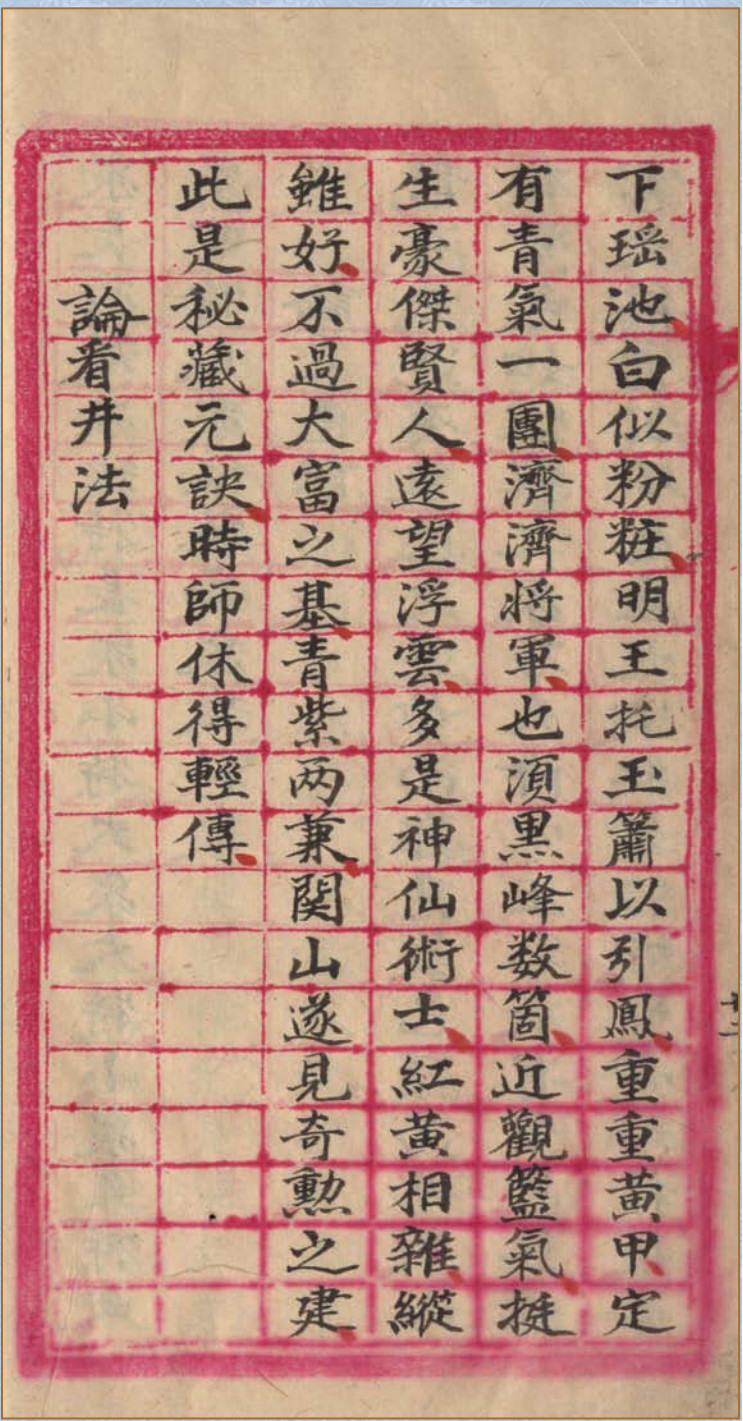 下瑶池白似粉粧明王托玉簫以引鳳重重黄甲定
有青氣一團濟濟将軍也湏黒峰数箇近觀籃氣挺
生豪傑賢人遠望浮雲多是神仙術士紅黄相雜縱
雖好不過大富之基青紫两兼関山遂見奇勲之建
此是秘藏元訣時師休得輕傳
論看井法